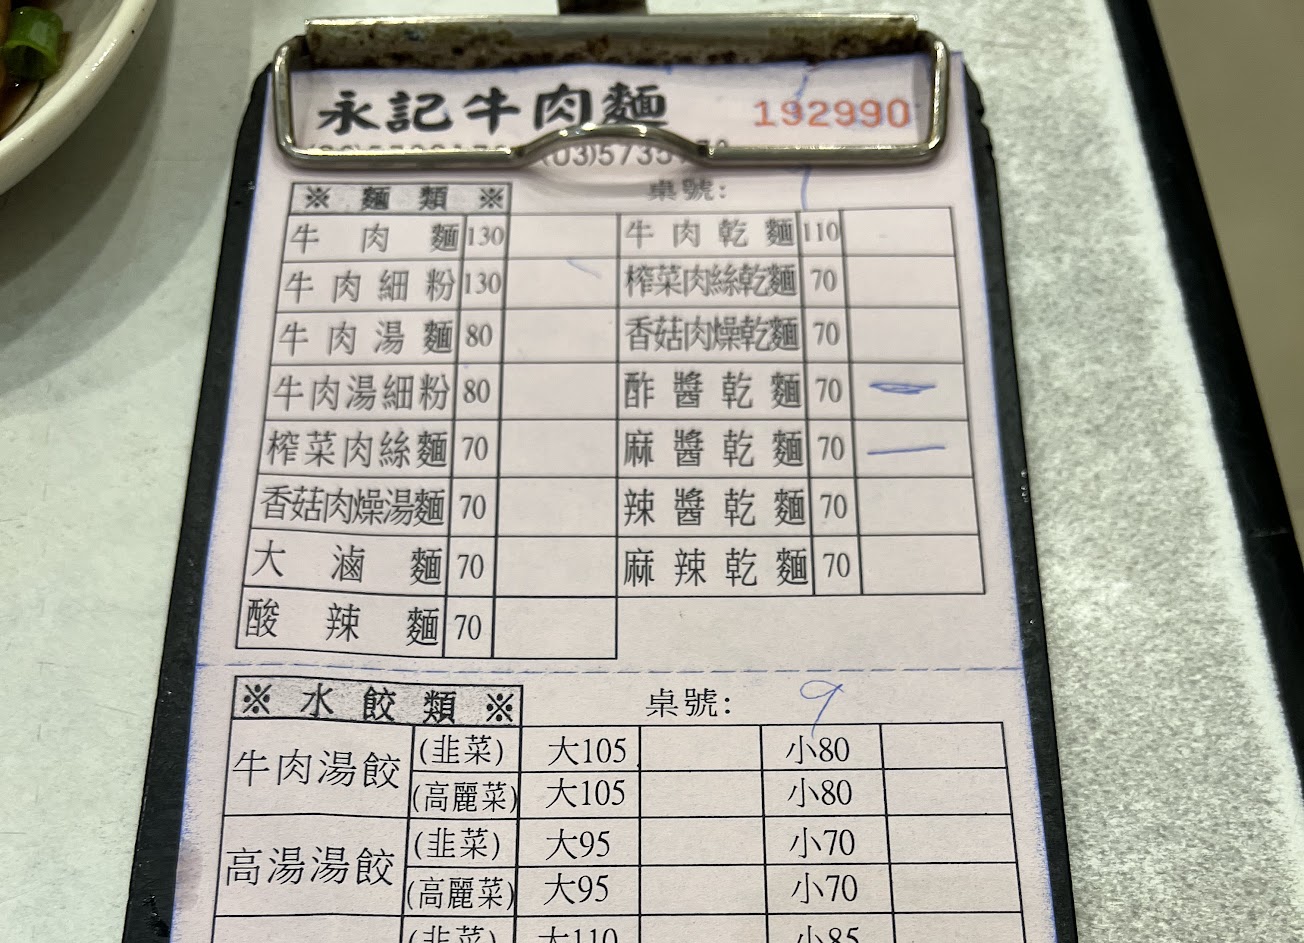 永記牛肉麵 192990
(03)5735
※ 麵 類 ※ 桌號:
牛肉麵 130 牛肉乾麵 110
牛肉細粉 130 榨菜肉絲乾麵 70
牛肉湯麵 80 香菇肉燥乾麵 70
牛肉湯細粉 80 酢醬乾麵 70 一
榨菜肉絲麵 70 麻醬乾麵 70 一
香菇肉燥湯麵 70 辣醬乾麵 70
大滷麵 70 麻辣乾麵 70
酸辣麵 70
※ 水 餃 類 ※ 桌號: 9
牛肉湯餃 (韭菜) 大105 小80
(高麗菜) 大105 小80
高湯湯餃 (韭菜) 大95 小70
(高麗菜) 大95 小70
(韭菜) 大110 小85